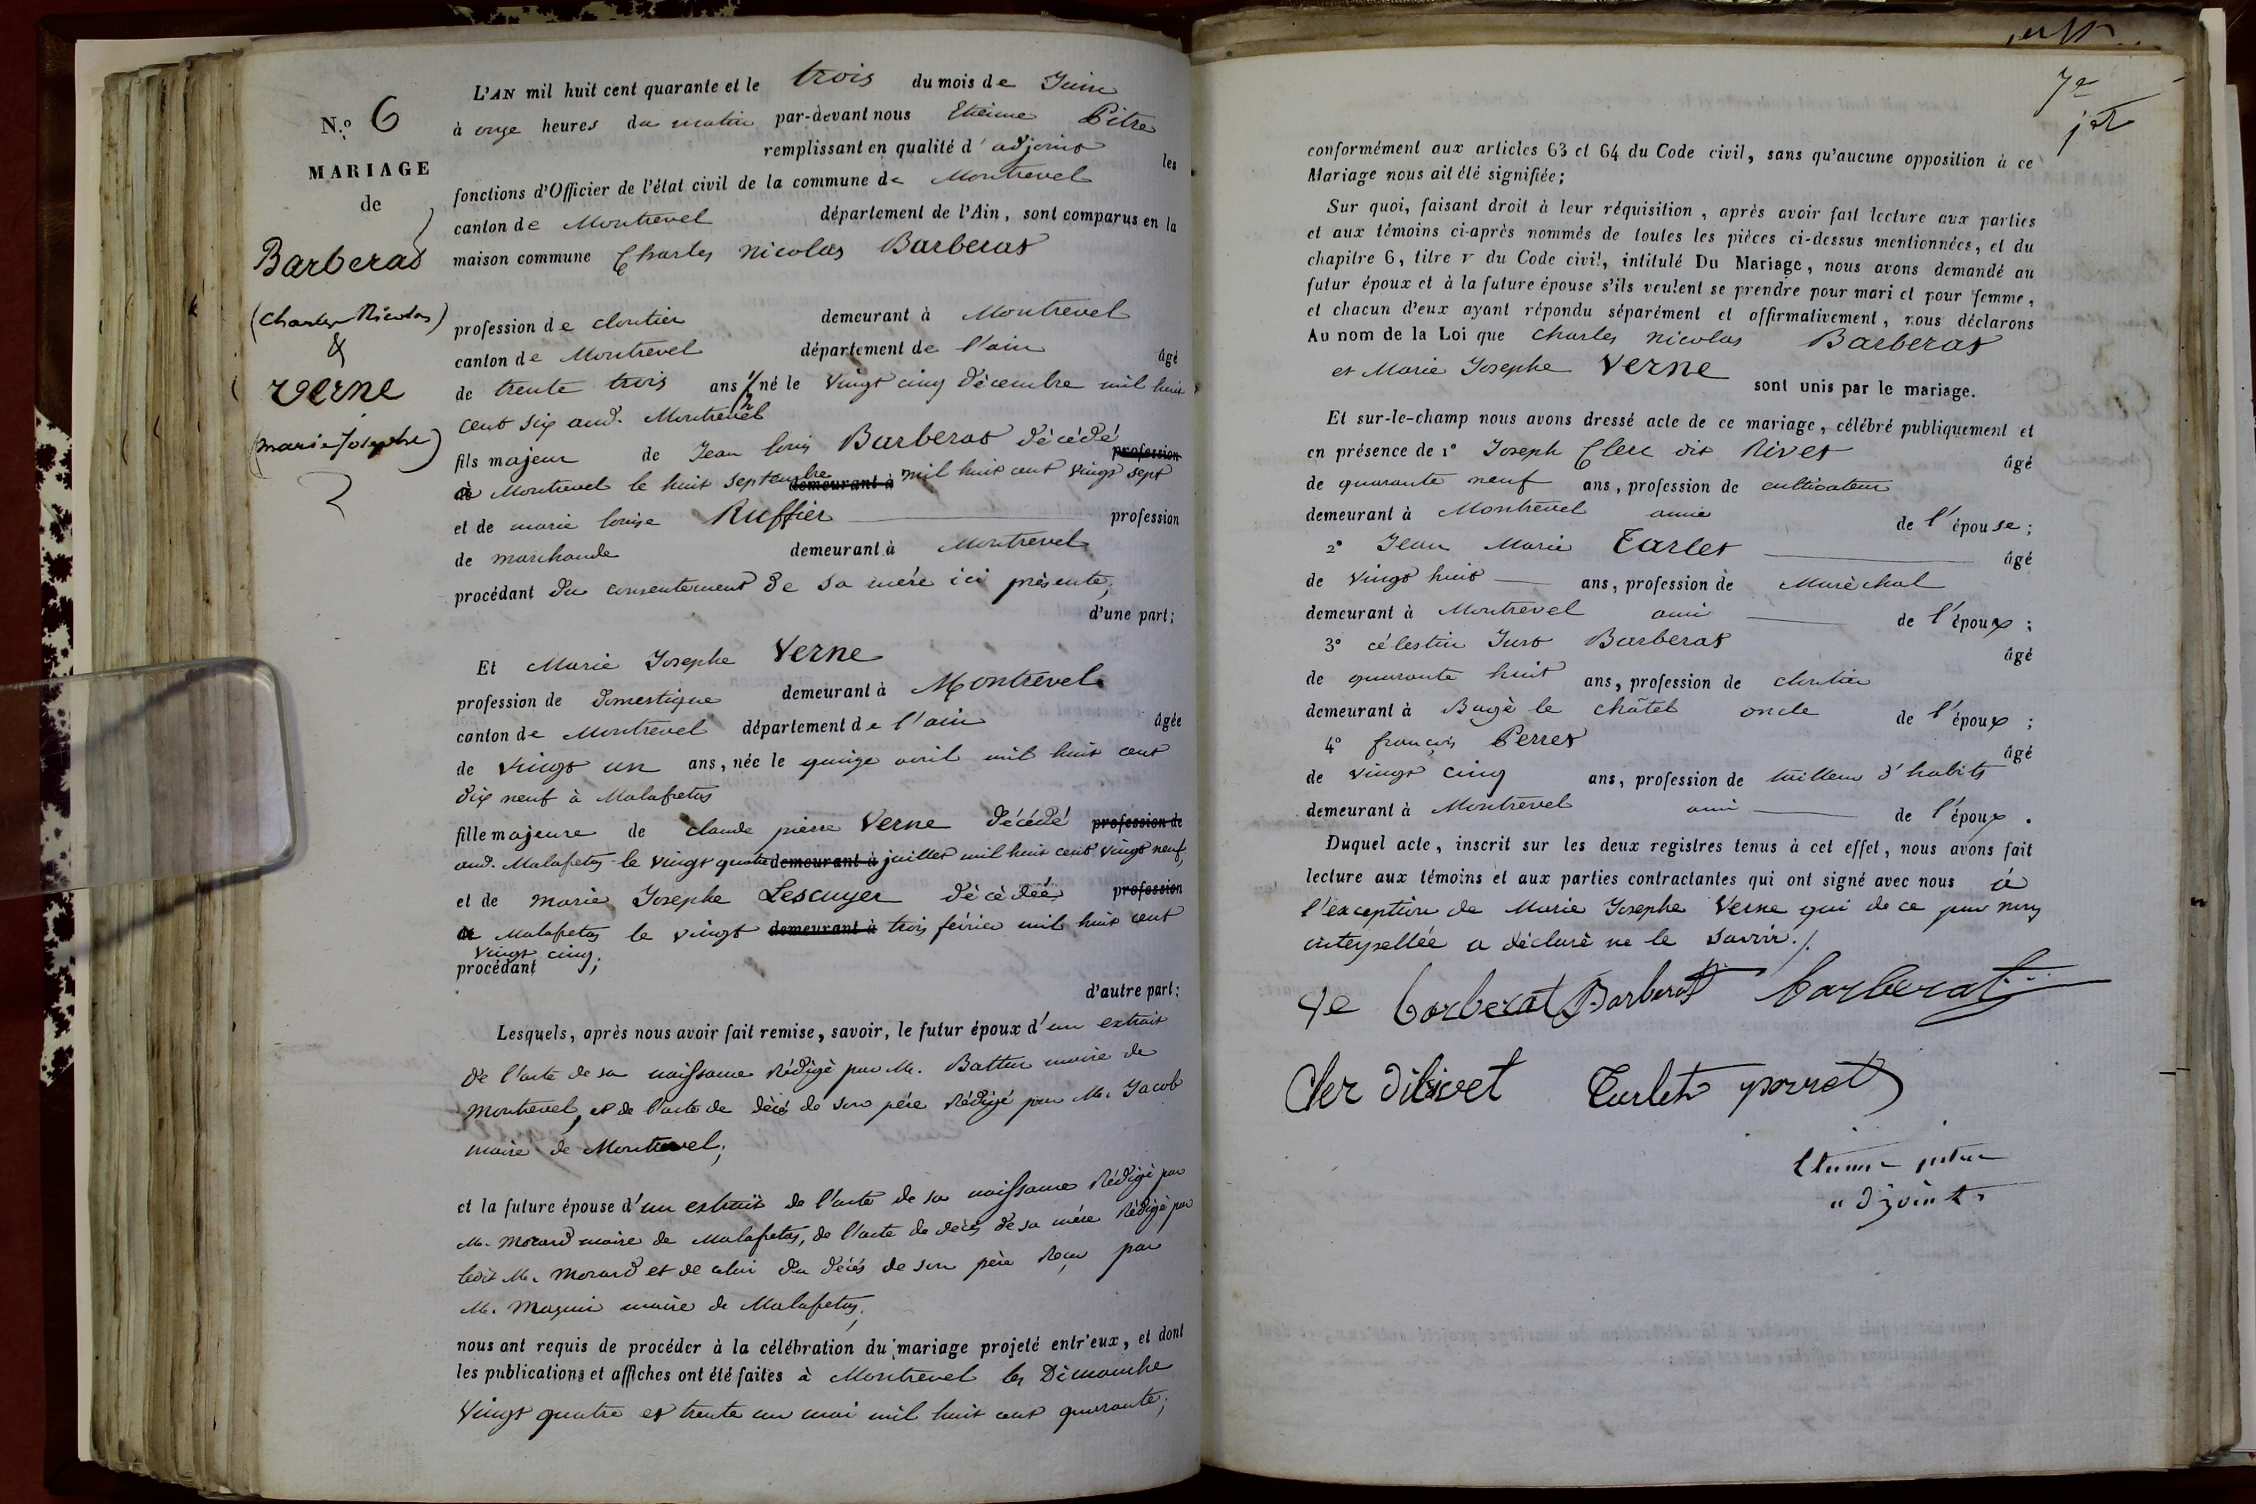 N.º 6
MARIAGE
de
Barberat
(Charles Nicolas)
&
Verne
(marie Josephe)
L'AN mil huit cent quarante et le trois du mois de Juin
à onze heures du matin par-devant nous Etienne Pitre
remplissant en qualité d'adjoint les
fonctions d'Officier de l'état civil de la commune de Montrevel
canton de Montrevel département de l'Ain, sont comparus en la
maison commune Charles Nicolas Barberat
profession de cloutier demeurant à Montrevel
canton de Montrevel département de l'ain âgé
de trente trois ans 1/2 né le vingt cinq décembre mil huit
cent six aud. Montrevel
fils majeur de Jean louis Barberat décédé profession
à Montrevel le huit septembre demeurant à mil huit cent vingt sept
et de marie louise Ruffier profession
de marchande demeurant à Montrevel
procédant du consentement de sa mère ici présente;
d'une part;
Et Marie Josephe Verne
profession de domestique demeurant à Montrevel
canton de Montrevel département de l'ain âgée
de vingt un ans, née le quinze avril mil huit cent
dix neuf à Malafretas
fille majeure de claude pierre Verne décédé profession de
aud. Malafretas le vingt quatre demeurant à juillet mil huit cent vingt neuf,
et de marie Josephe Lescuyer décédée profession
à Malafretas le vingt demeurant à trois février mil huit cent
vingt cinq;
procédant
d'autre part;
Lesquels, après nous avoir fait remise, savoir, le futur époux d'un extrait
de l'acte de sa naissance rédigé par M. Battur maire de
Montrevel, et de l'acte de décé de son père rédigé par M. Jacob
maire de Montrevel;
et la future épouse d'un extrait de l'acte de sa naissance rédigé par
M. Morard maire de Malafretas, de l'acte de décès de sa mère rédigé par
ledit M. Morard et de celui du décés de son père reçu par
M. Maguin maire de Malafretas;
nous ont requis de procéder à la célébration du mariage projeté entr'eux, et dont
les publications et affiches ont été faites à Montrevel les Dimanche
vingt quatre et trente un mai mil huit cent quarante;
7e
conformément aux articles 63 et 64 du Code civil, sans qu'aucune opposition à ce
Mariage nous ait été signifiée;
Sur quoi, faisant droit à leur réquisition, après avoir fait lecture aux parties
et aux témoins ci-après nommés de toutes les pièces ci-dessus mentionnées, et du
chapitre 6, titre v du Code civil, intitulé Du Mariage, nous avons demandé au
futur époux et à la future épouse s'ils veulent se prendre pour mari et pour femme,
et chacun d'eux ayant répondu séparément et affirmativement, nous déclarons
Au nom de la Loi que Charles Nicolas Barberat
et Marie Josephe Verne sont unis par le mariage.
Et sur-le-champ nous avons dressé acte de ce mariage, célébré publiquement et
en présence de 1º Joseph Clerc dit Rivet âgé
de quarante neuf ans, profession de cultivateur
demeurant à Montrevel amie de l'épouse;
2º Jean Marie Tarlet âgé
de vingt huit ans, profession de Maréchal
demeurant à Montrevel ami de l'époux;
3º célestin Just Barberat âgé
de quarante huit ans, profession de cloutier
demeurant à Bagé le châtel oncle de l'époux;
4º françois Perret âgé
de vingt cinq ans, profession de tailleur d'habits
demeurant à Montrevel ami de l'époux.
Duquel acte, inscrit sur les deux registres tenus à cet effet, nous avons fait
lecture aux témoins et aux parties contractantes qui ont signé avec nous à
l'exception de Marie Josephe Verne qui de ce par nous
interpellée a déclaré ne le savoir./.
barberat Barberat barberat
Cler dit rivet Tarlet perret
Etienne pitre
adjoint